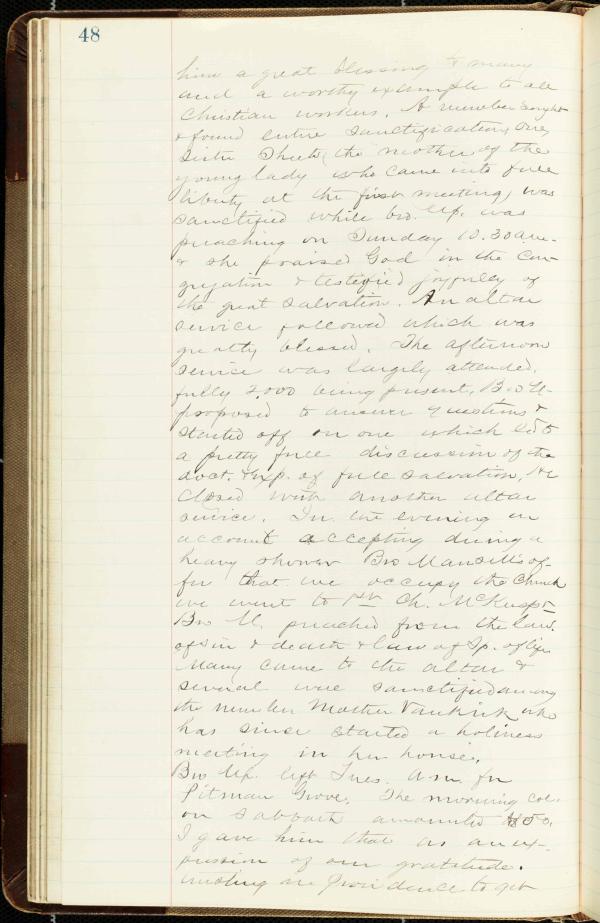 48
him a great blessing to many
and a worthy example to all
Christian workers. A number sought
& found entire sanctification, One,
Sister Sheets, the mother of the
young lady who came into full
liberty at the first meeting, was
sanctified while bro. Up. was
preaching on Sunday 10.30 a.m.
& she praised God in the con-
gregation & testified joyfully of
the great salvation. An altar
service followed which was
greatly blessed. The afternoon
service was largely attended,
fully 2,000 being present, Bro U-
proposed to answer questions &
started off on one which led to
a pretty full discussion of the
doct. & exp. of full salvation, He
closed with another altar
service. In the evening on
account accepting during a
heavy shower Bro Mansill's of-
fer that we occupy the Church
we went to 1st Ch. McKeesport
Bro U. preached from the law.
of sin & death & law of Sp. of life
Many came to the altar &
several were sanctified among
the number Mother Vankirk who
has since started a holiness
meeting in her house.
Bro Up. left Tues. a.m. for
Pitman Grove. The morning col.
on Sabbath amounted
I gave him that as an ex-
pression of our gratitude.
trusting in Providence to get